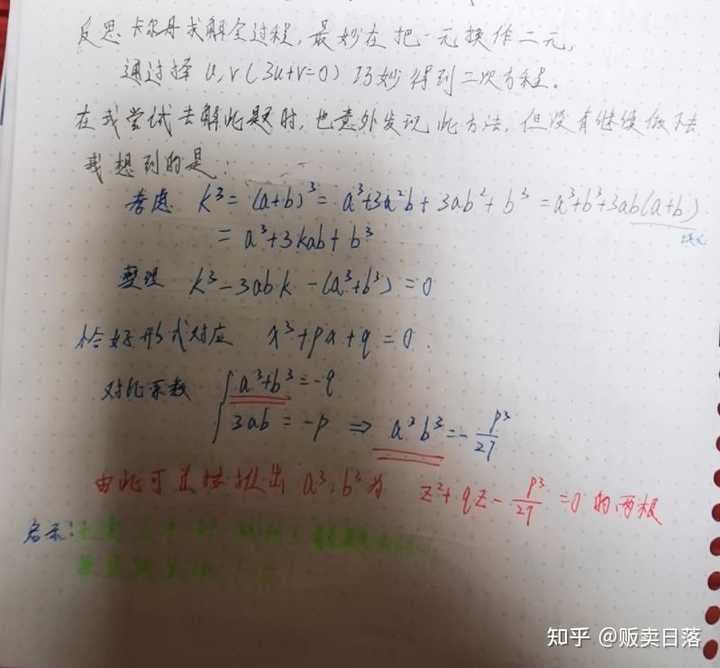 反思卡尔丹求解全过程,最妙在把一元换作二元,
通过择 u,v(3u+v=0) 巧妙得到二次方程。
在我尝试去解此题时,也意外发现此方法,但没有继续做下去
我想到的是:
考虑 k³=(a+b)³=a³+3a²b+3ab²+b³=a³+b³+3ab(a+b)
=a³+3kab+b³
整理 k³-3abk-(a³+b³)=0
恰好形式对应 x³+px+q=0.
对比系数 { a³+b³=-q
3ab=-p ⇒ a³b³=-p³/27
由此可直接推出 a³,b³为 z²+qz-p³/27=0 的两根
启示:
知乎 @贩卖日落